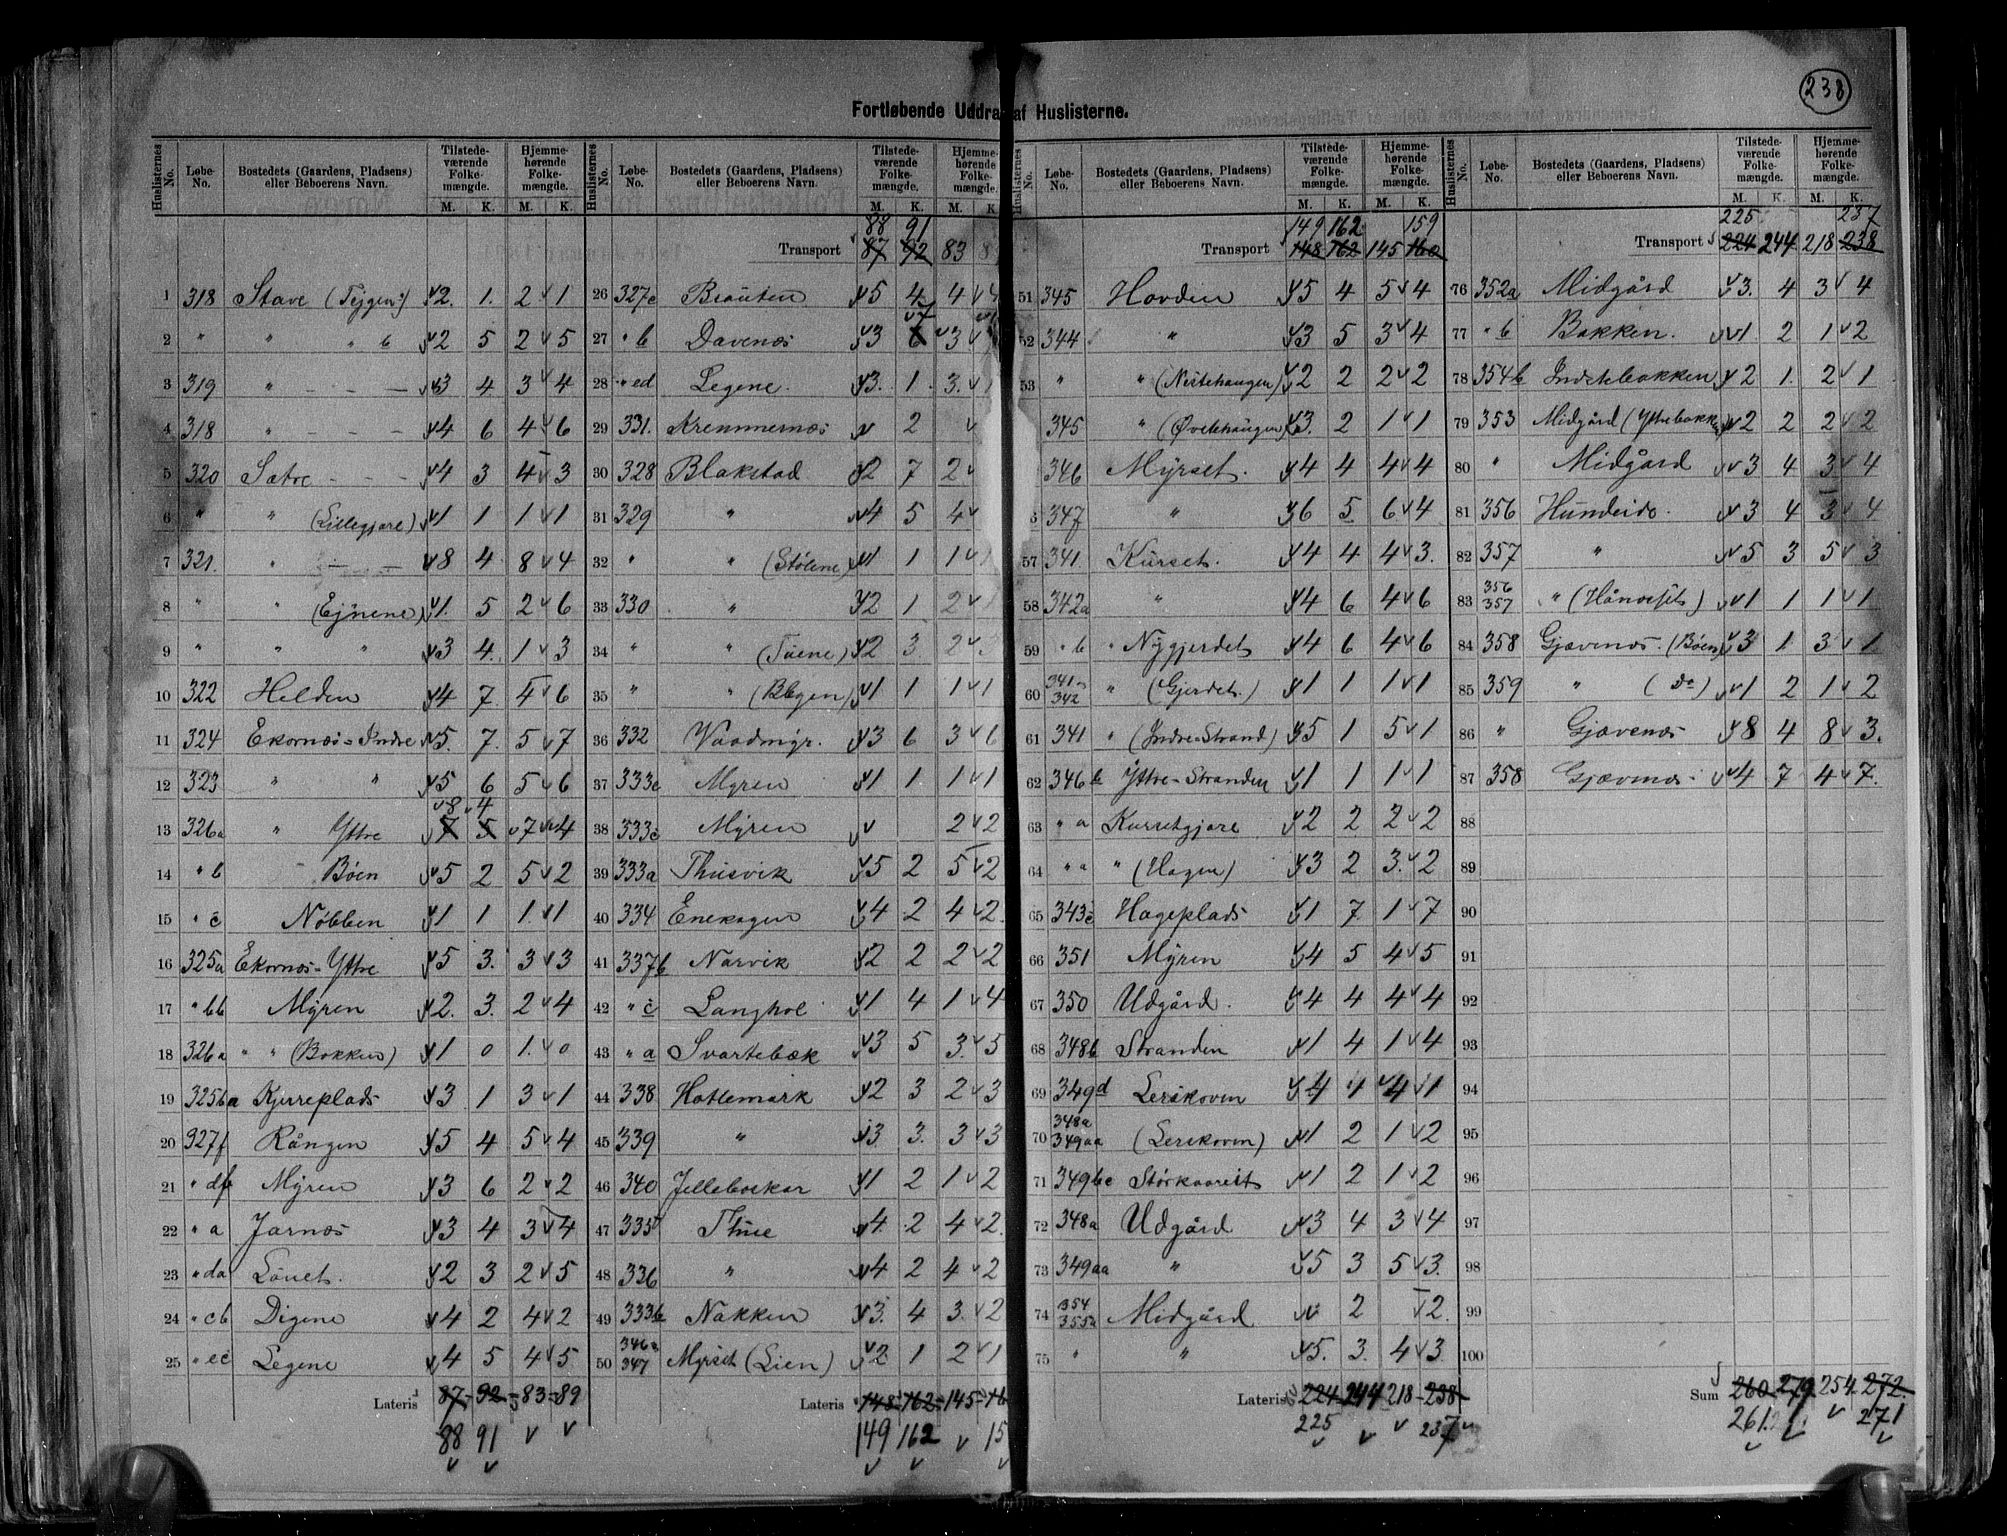 238
Fortløbende Uddra af Huslisterne.
Huslisternes No. Løbe-No. Bostedets (Gaardens, Pladsens) eller Beboerens Navn. Tilstede-værende Folke-mængde. Hjemme-hørende Folke-mængde. M. K. M. K.
1 318 Stave (Tejgen) 2. 1. 2 1
2 " " " b 2 5 2 5
3 319 " - - - 3 4 3 4
4 318 " - - - 4 6 4 6
5 320 Satre - - - 4 3 4 3
6 " " (Lillegjære) 1 1 1 1
7 321. " - - 8 4 8 4
8 " " (Ejnene) 1. 5 2 6
9 " " " 3 4. 1 3
10 322 Helden 4 7. 4 6
11 324 Ekornæs=Indre 5. 7. 5 7
12 323 " " 5 6 5 6
8 4
13 326a " Yttre 7 5 7 4
14 " b Bøen 5 2 5 2
15 " c Nøbben 1 1 1. 1
16 325a Ekornæs=Yttre 5 3. 3 3
17 " bb Myren 2. 3. 2 4
18 326a " " (Bakken) 1 0 1. 0
19 325ba Kjerreplads 3 1 3 1
20 327f Rången 5 4 5 4
21 " df Myren 3 6 2 2
22 " a Jarnæs 3 4 3 4
23 " da Lønet. 2 3 2 5
24 " cb Digene 4 2 4 2
25 " ec Legene 4 5 4 5.
Lateris 87 - 92 - 83 - 89
88 91
Huslisternes No. Løbe-No. Bostedets (Gaardens, Pladsens) eller Beboerens Navn. Tilstede-værende Folke-mængde. Hjemme- M. K. M. K
88 91
Transport 87 92 83 8
26 327c Brauten 5 4 4 4
7
27 " b Davenæs 3 6 3
28 " ed Legene. 3. 1. 3.
29 331. Kremmernæs 2
30 328 Blakstad 2 7 2
31 329 " 4 5 4
32 " " (Stølene) 1 1 1 1
33 330 " 2 1 2 1
34 " " (Tuene) 2 3 2 3
35 " " 1 1 1 1
36 332 Vaadmyr. 3 6 3 6
37 333c Myren 1 1 1 1
38 333c Myren 2 2
39 333a Thusvik 5 2 5 2
40 334 Enehagen 4 2 4 2.
41 337b Narvik 2 2 2 2
42 " c Langhol 1 4 1 4
43 " a Svartebæk 3 5 3. 5
44 338 Hattemark 2 3 2 3
45 339 " 3 3. 3 3
46 340 Jelleboekar 1 2 1 2
47 335 Thue 4. 2 4 2.
48 336 " 4 2 4 2
49 333b Nakken 3. 4 3. 2
346a
50 347 Myrset (Lien) 2 1 2 1
Lateris 148 - 162 - 145 - 16
149 162 15
Løbe-No. Bostedets (Gaardens, Pladsens) eller Beboerens Navn. Tilstede-værende Folke-mængde. Hjemme-hørende Folke-mængde. M. K. M. K.
149 162 159
Transport 148 162 145 160
51 345 Hovden 5 4 5 4
52 344 " 3 5 3 4
53 " " (Nistehaugen) 2 2 2 2
345 " (Øvstehaugen) 3. 2 1 1
346 Myrset. 4 4 4 4
347 " 6 5 6 4
57 341. Kurset. 4 4 4 3.
58 342a " 4 6 4 6
59 " b " Nygjerdet 4 6 4 6
341
60 342 " (Gjerdet.) 1 1 1 1
61 341 " (Indre-Strand) 5 1 5 1
62 346b Yttre-Stranden 1 1 1 1
63 " a Kursetgjære 2 2 2 2
64 " a " (Hagen) 3 2 3. 2
65 343c Hageplads 1 7 1 7
66 351 Myren 4 5 4 5
67 350 Udgård. 4 4 4 4
68 348b Stranden 1 4 1 4
69 349d Lerikoven 4 1 4 1
348a
70 349aa (Lerikoven) 1 2 1 2
71 349bc 1 2 1 2
72 348a Udgård 3 4 3 4
73 349aa " 5 3 5 3.
354
74 355a Midgård 2 2.
75 " " 5. 3. 4 3.
Lateris 224 - 244 218 - 238
225 237
Huslisternes No. Løbe-No. Bostedets (Gaardens, Pladsens) eller Beboerens Navn. Tilstede-værende Folke-mængde. Hjemme-hørende Folke-mængde. M. K. M. K.
225 237
Transport 224 244 218 238
76 352a Midgård 3. 4 3 4
77 " b Bakken. 1. 2 1 2
78 354b Indstebakken 2 1. 2 1
79 353 Midgård (Yttrebakken) 2 2 2 2
80 " Midgård 3 4 3 4
81 356 Hundeide. 3 4 3 4
82 357 " 5 3 5 3
356
83 357 " 1 1 1 1
84 358 Gjævenæs. (Bøen) 3 1 3 1
85 359 " (do) 1 2 1 2
86 " Gjævenæs 8 4 8 3.
87 358 Gjævenæs 4 7 4 7.
88
89
90
91
92
93
94
95
96
97
98
99
100
Sum 260 279 254 272.
261. 271